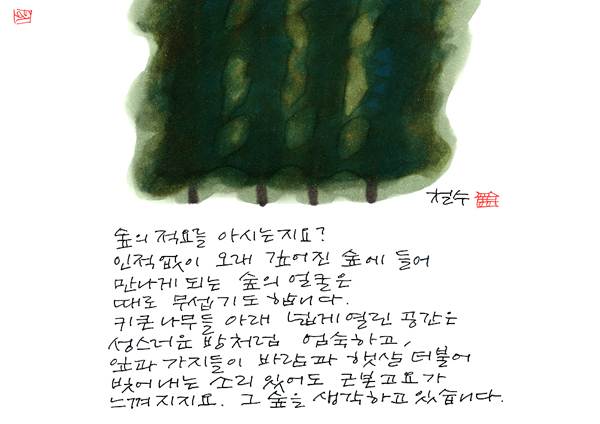 철수
숲의 적요를 아시는지요?
인적없이 오래 깊어진 숲에 들어
만나게 되는 숲의 얼굴은
때로 무섭기도 합니다.
키큰나무들 아래 넓게 열린 공간은
성스러운 방처럼 엄숙하고,
잎과 가지들이 바람과 햇살 더불어
빚어내는 소리 있어도 근본고요가
느껴지지요. 그 숲을 생각하고 있습니다.